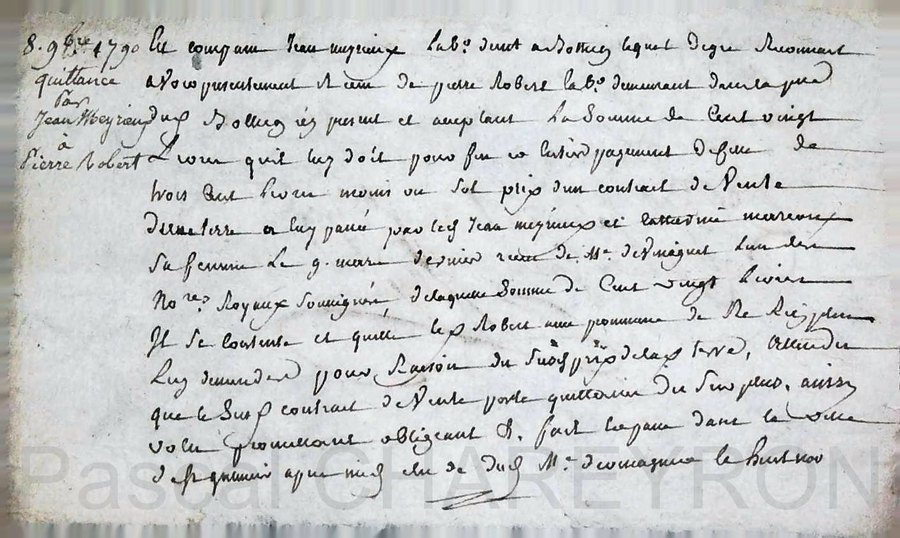 8. 9bre 1790
quittance
par
Jean Meyrieux
à
Pierre Robert
Est comparu Jean meyrieux lab.r dud lequel de gré Reconnoit
avoir presentement Receu de pierre Robert lab.r demeurant dans la p
present et acceptant La Somme de Cent vingt
Livres qu'il luy doit pour fin et Entier payement de celle de
trois Cent Livres moins un Sol prix d'un contract de Vente
d'une terre a luy passé par led Jean meyrieux et Catherine
Sa femme Le 9. mars dernier receu de M.e de L'un des
No.res Royaux Soussignés de laquelle Somme de Cent vingt Livres
Il Se Contente et quitte led Robert avec promesse de Ne Rien plus
Luy demander pour Raison du Susd prix de lad terre, attendu
que le Susd contract de Vente porte quittance du Surplus, ainsy
voulu promettant obligeant &. fait Et passé dans la ville
apres midy de dud M.e le huit nov
Pascal CHAREYRON